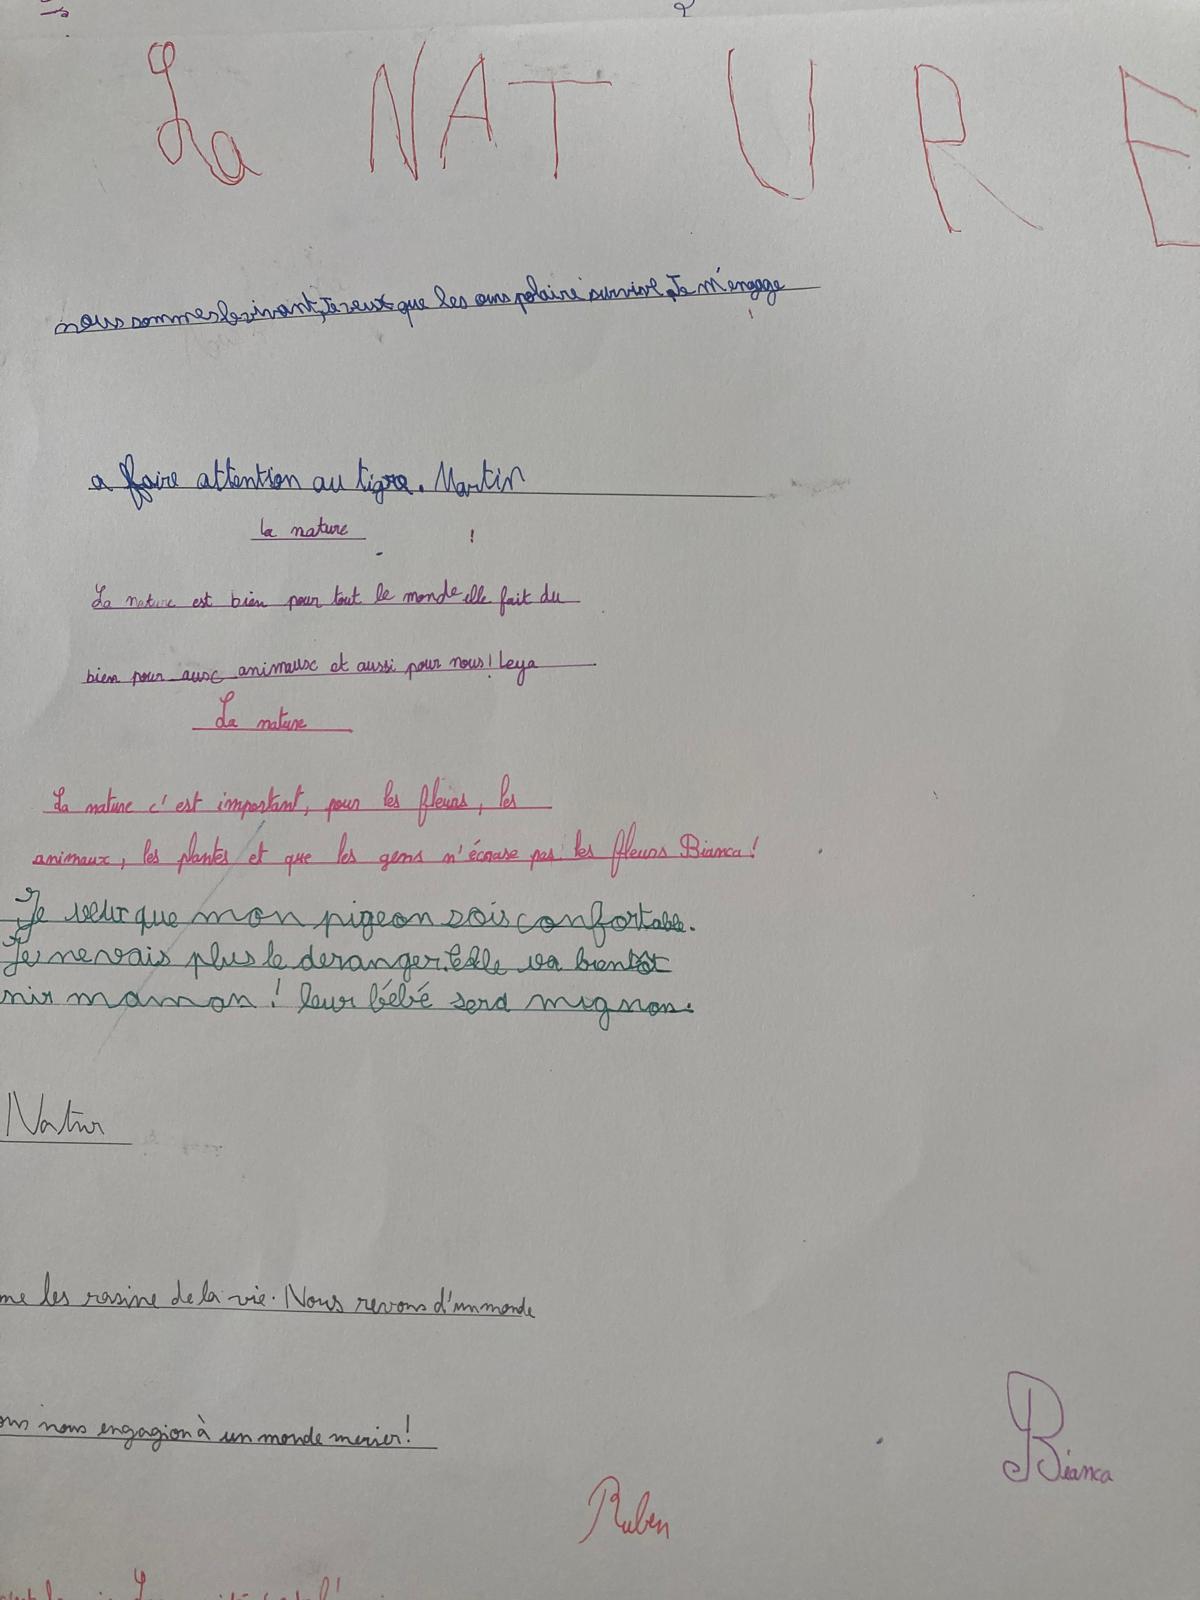 La NATURE
nous sommes le vivant, Je veux que les ours polaire survive, Je m'engage
a faire attention au tigre. Martin
la nature !
La nature est bien pour tout le monde elle fait du
bien pour aux animaux et aussi pour nous! Leya
La nature
La nature c'est important, pour les fleurs, les
animaux, les plantes et que les gens n'écrase pas les fleurs Bianca!
Je veux que mon pigeon sois confortable.
Je ne vais plus le deranger. Elle va bientot
nir maman! leur bébé sera mignon.
Natur
me les rasine de la vie. Nous revons d'un monde
ous nous engagion à un monde
Bianca
Ruben